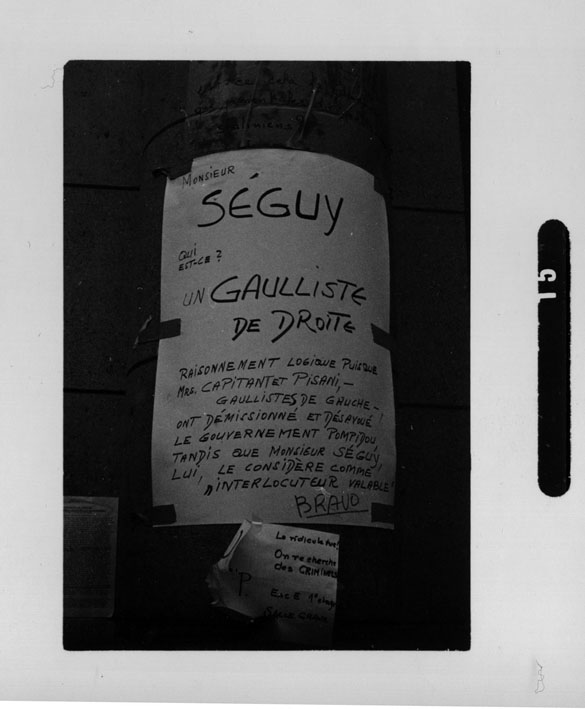 MONSIEUR
SÉGUY
QUI
EST-CE ?
UN GAULLISTE
DE DROITE
RAISONNEMENT LOGIQUE PUISQUE
MRS. CAPITANT ET PISANI, –
GAULLISTES DE GAUCHE –
ONT DÉMISSIONNÉ ET DÉSAVOUÉ
LE GOUVERNEMENT POMPIDOU,
TANDIS QUE MONSIEUR SÉGUY,
LUI, LE CONSIDÈRE COMME
"INTERLOCUTEUR VALABLE"!
BRAVO
Le ridicule tue!
On recherche
des CRIMINELS
"P.
Esc E 1er étage
SALLE
15